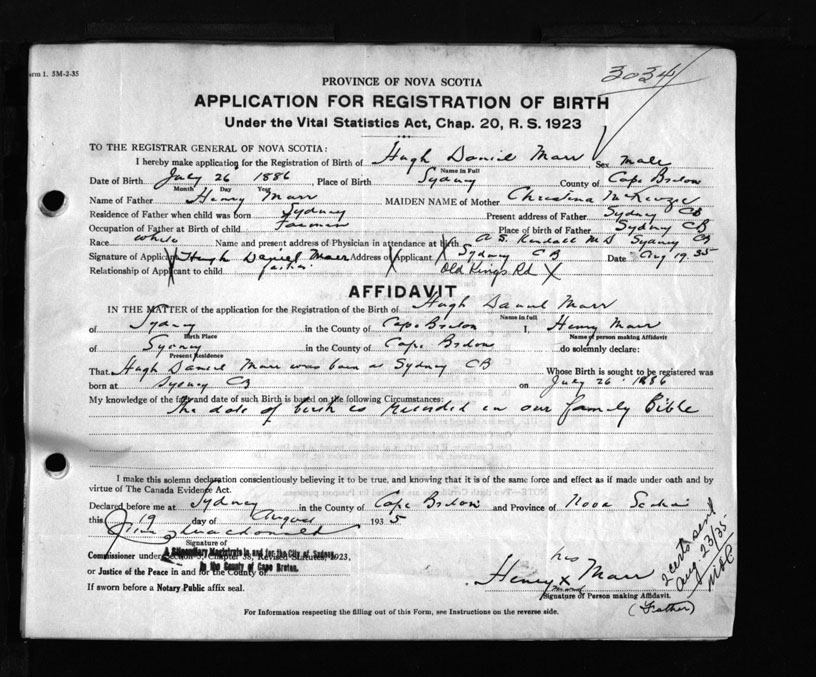 orm 1. 5M-2-35
3034
PROVINCE OF NOVA SCOTIA
APPLICATION FOR REGISTRATION OF BIRTH
Under the Vital Statistics Act, Chap. 20, R. S. 1923
TO THE REGISTRAR GENERAL OF NOVA SCOTIA:
I hereby make application for the Registration of Birth of Hugh Daniel Marr Sex male
Name in Full
Date of Birth July 26 1886, Place of Birth Sydney County of Cape Breton
Month Day Year
Name of Father Henry Marr MAIDEN NAME of Mother Christina McKenzie
Residence of Father when child was born Sydney Present address of Father Sydney CB
Occupation of Father at Birth of child Foreman Place of Birth of Father Sydney CB
Race white Name and present address of Physician in attendance at birth A S. Kendall M D Sydney CB
Signature of Applicant Hugh Daniel Marr Address of Applicant Sydney CB Date Aug 19 35
Relationship of Applicant to child Old Kings Rd X
AFFIDAVIT
IN THE MATTER of the application for the Registration of the Birth of Hugh Daniel Marr
Name in full
of Sydney in the County of Cape Breton I, Henry Marr
Birth Place Name of person making Affidavit
of Sydney in the County of Cape Breton do solemnly declare:
Present Residence
That Hugh Daniel Marr was born at Sydney CB Whose Birth is sought to be registered was
born at Sydney CB on July 26 1886
My knowledge of the fact and date of such Birth is based on the following Circumstances:
The date of birth is recorded in our family Bible
I make this solemn declaration conscientiously believing it to be true, and knowing that it is of the same force and effect as if made under oath and by
virtue of The Canada Evidence Act.
Declared before me at Sydney in the County of Cape Breton and Province of Nova Scotia
this 19 day of August 1935
Signature of
A Stipendiary Magistrate in and for the City of Sydney
Commissioner under Section 3, Chapter 38, Revised Statutes, 1923.
In the County of Cape Breton
or Justice of the Peace in and for the County of
If sworn before a Notary Public affix seal.
his
Henry X Marr
mark
Signature of Person making Affidavit.
(Father)
2 certs sent
Aug 23/35
For Information respecting the filling out of this Form, see Instructions on the reverse side.